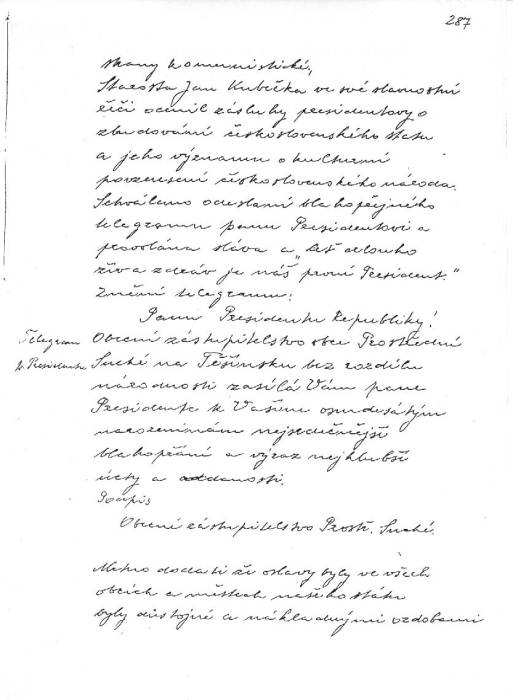 287
strany komunistické,
Starosta Jan Kubička ve své slavnostní
řeči ocenil zásluhy presidentovy o
zbudování československého státu
a jeho významu o kulturní
povznesení československého národa.
Schváleno odeslání blahopřejného
telegramu panu Presidentovi a
provolána sláva a „ať dlouho
živ a zdráv je náš první President."
Znění telegramu:
Panu Presidentu Republiky!
Telegram
k Presidentu
Obecní zástupitelstvo obce Prostřední
Suché na Těšínsku bez rozdílu
národnosti zasílá Vám pane
Presidente k Vašim osmdesátým
narozeninám nejsrdečnější
blahopřání a výraz nejhlubší
úcty a oddanosti.
Podpis
Obecní zástupitelstvo Prostř. Suché.
Nutno dodati že oslavy byly ve všech
obcích a městech našeho státu
byly důstojné a nákladnými ozdobami